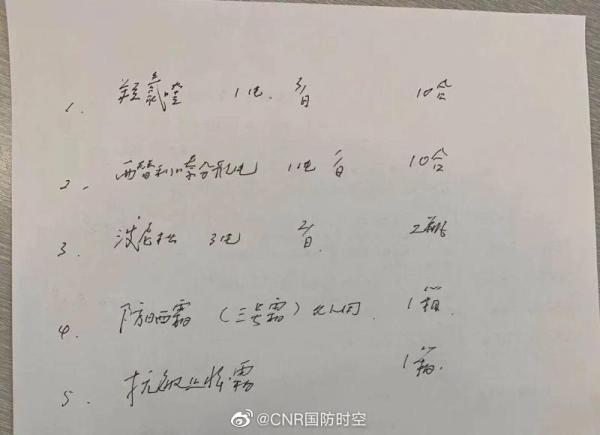 1. 羟氯喹 1片 3/日 10盒
2. 西替利嗪分散片 1片 1/日 10盒
3. 泼尼松 3片 2/日 2瓶
4. 防晒霜(三号霜) 1箱
5. 抗敏止痒霜 1箱
@CNR国防时空